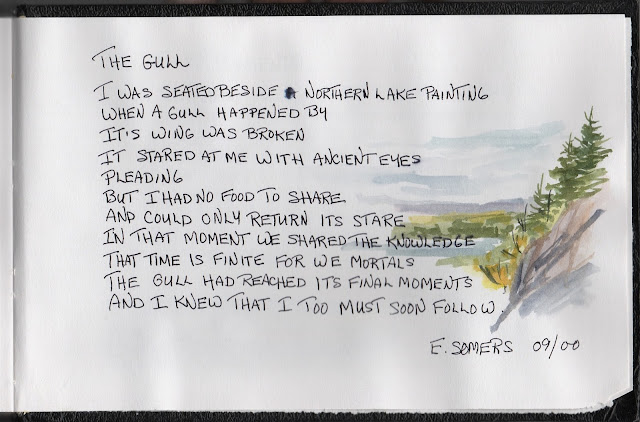 THE GULL
I WAS SEATED BESIDE A NORTHERN LAKE PAINTING
WHEN A GULL HAPPENED BY
IT'S WING WAS BROKEN
IT STARED AT ME WITH ANCIENT EYES
PLEADING
BUT I HAD NO FOOD TO SHARE
AND COULD ONLY RETURN ITS STARE
IN THAT MOMENT WE SHARED THE KNOWLEDGE
THAT TIME IS FINITE FOR WE MORTALS
THE GULL HAD REACHED ITS FINAL MOMENTS
AND I KNEW THAT I TOO MUST SOON FOLLOW.
E. SOMERS 09/00